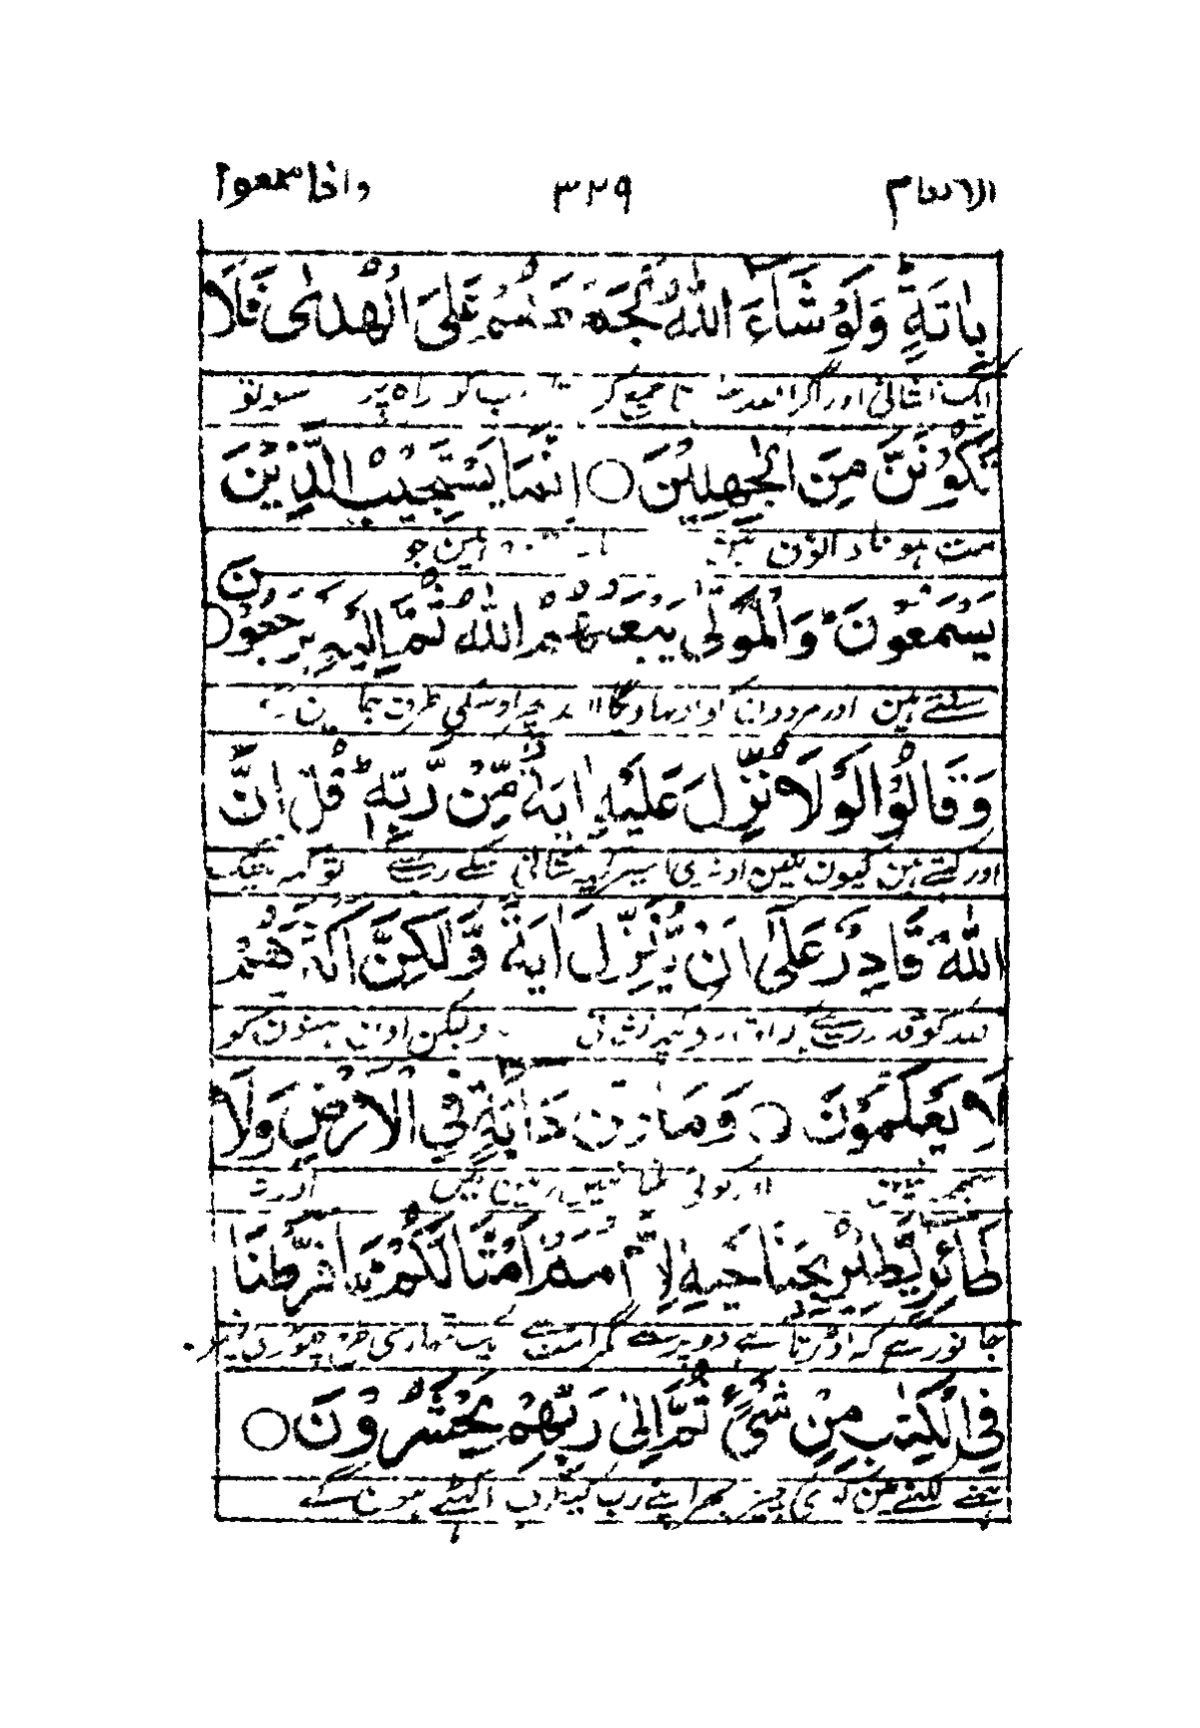 الانعام ٣٢٩ واذا سمعوا
بِاٰيَةٍ وَلَوْ شَآءَ اللّٰهُ لَجَمَعَهُمْ عَلَى الْهُدٰى فَلَا
ایک نشانی اور اگر اللہ جمع کر سب کو راہ پر سو تو
تَكُوْنَنَّ مِنَ الْجٰهِلِيْنَ ○ اِنَّمَا يَسْتَجِيْبُ الَّذِيْنَ
مت ہو نادانون ہین جو
يَسْمَعُوْنَ وَالْمَوْتٰى يَبْعَثُهُمُ اللّٰهُ ثُمَّ اِلَيْهِ يُرْجَعُوْنَ ○
سنتے ہین اور مردون کو اوٹھاویگا اللہ پھر اوسکی طرف
وَقَالُوْا لَوْلَا نُزِّلَ عَلَيْهِ اٰيَةٌ مِّنْ رَّبِّهٖ قُلْ اِنَّ
اور کہتے ہین کیون نہین اوتری اسپر کچھ نشانی اسکے رب سے تو کہہ بیشک
اللّٰهَ قَادِرٌ عَلٰٓى اَنْ يُّنَزِّلَ اٰيَةً وَّلٰكِنَّ اَكْثَرَهُمْ
اللہ کو قدرت ہے کہ اوتارے کچھ نشانی ولیکن اون بہتون کو
لَا يَعْلَمُوْنَ ○ وَمَا مِنْ دَآبَّةٍ فِي الْاَرْضِ وَلَا
سمجھ نہین اور کوئی نہین زمین مین اور نہ
طَآئِرٍ يَّطِيْرُ بِجَنَاحَيْهِ اِلَّآ اُمَمٌ اَمْثَالُكُمْ مَا فَرَّطْنَا
جانور ہے کہ اوڑتا ہے دو پر سے مگر امت ہے تمہاری طرح چھوڑی نہین
فِي الْكِتٰبِ مِنْ شَيْءٍ ثُمَّ اِلٰى رَبِّهِمْ يُحْشَرُوْنَ ○
ہمنے لکھنے مین کوئی چیز پھر اپنے رب کیطرف اکٹھے ہون گے